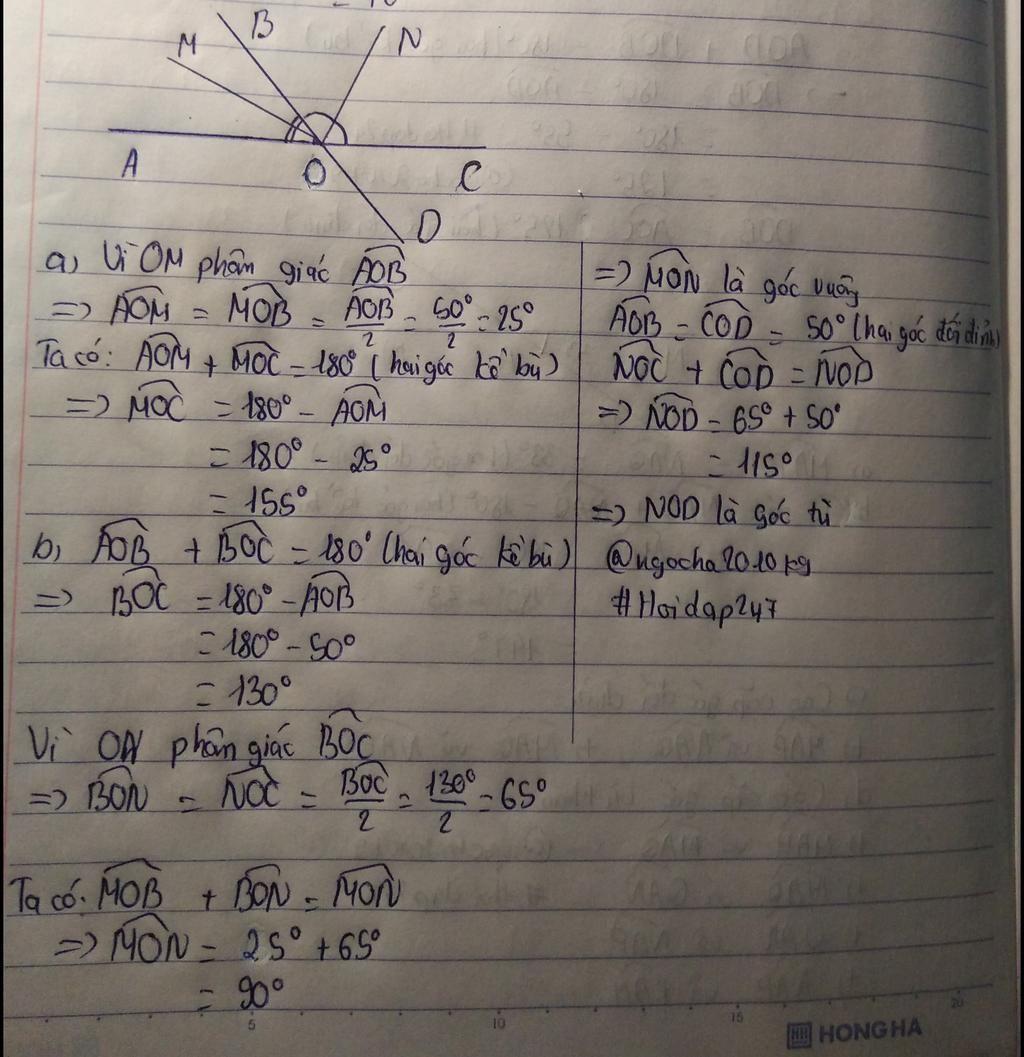 B
N
M
A
O
C
D
a) Vì OM phân giác AOB
=> AOM = MOB = AOB/2 = 50°/2 = 25°
Ta có: AOM + MOC = 180° (hai góc kề bù)
=> MOC = 180° - AOM
= 180° - 25°
= 155°
b) AOB + BOC = 180° (hai góc kề bù)
=> BOC = 180° - AOB
= 180° - 50°
= 130°
Vì ON phân giác BOC
=> BON = NOC = BOC/2 = 130°/2 = 65°
Ta có: MOB + BON = MON
=> MON = 25° + 65°
= 90°
=> MON là góc vuông
AOB = COD = 50° (hai góc đối đỉnh)
NOC + COD = NOD
=> NOD = 65° + 50°
= 115°
=> NOD là góc tù
@ngocha2010kg
#Hoidap247
5 10 15 20
HONG HA